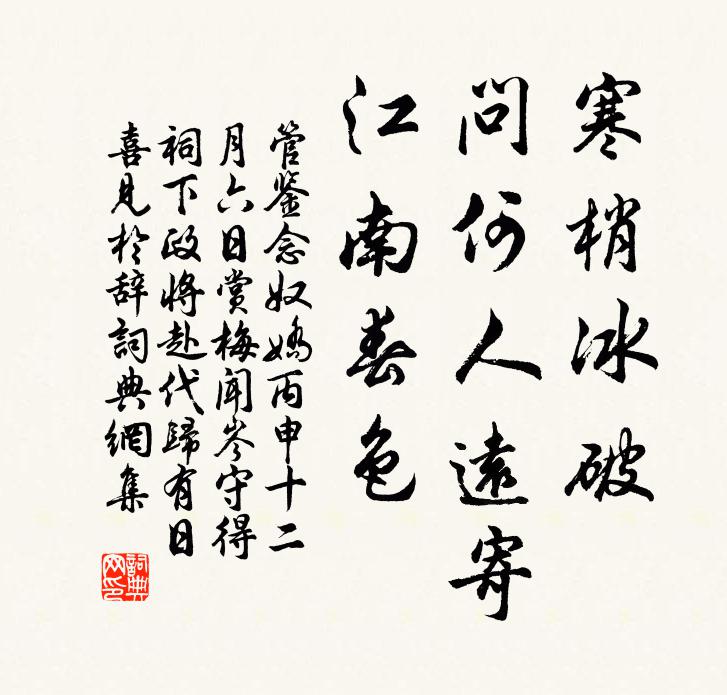 寒梢冰破
問何人遠寄
江南春色
管鉴念奴嬌丙申十二
月六日賞梅聞岑守得
祠下政将赴代歸有日
喜見於辞詞典網集
詞典网印